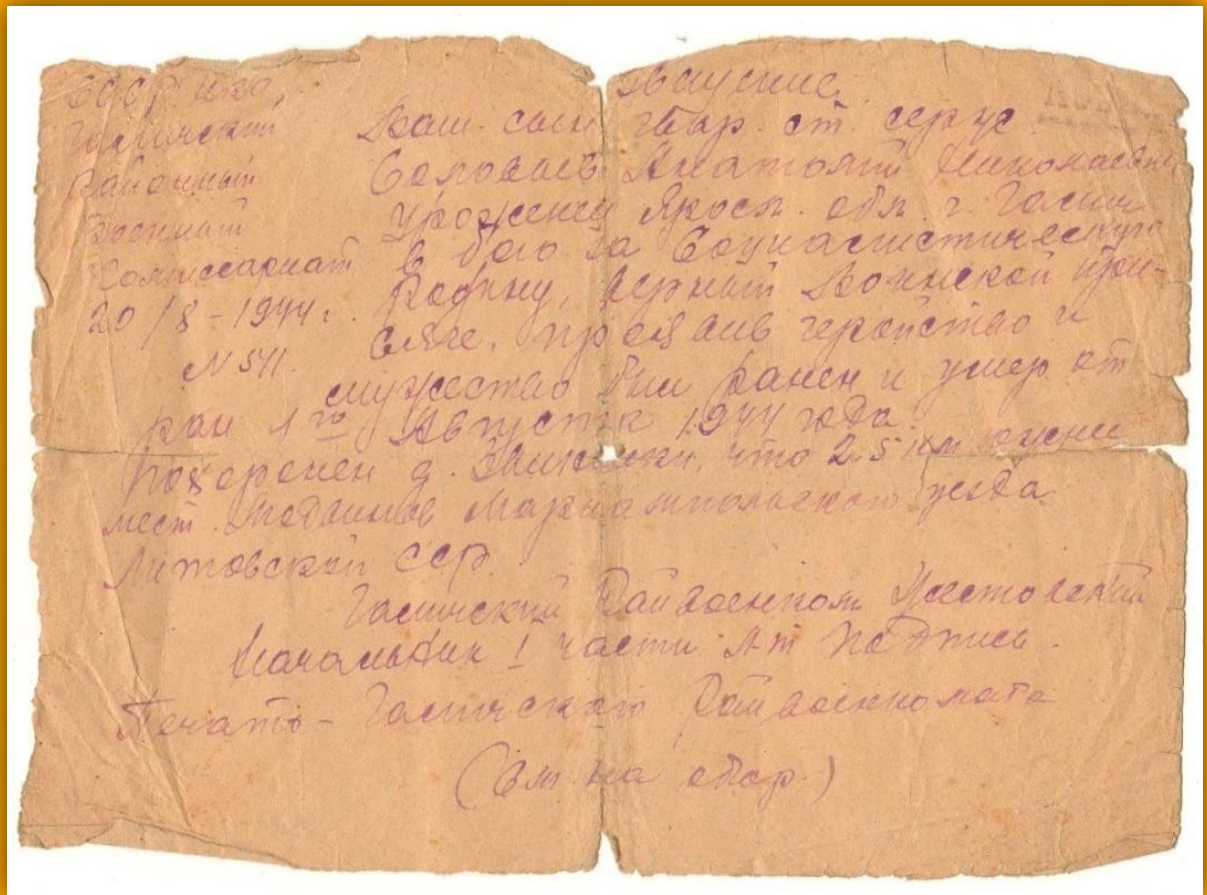 СССР НКО,
Галичский
Районный
Военный
Комиссариат
20/8-1944 г.
N 541.
Извещение
Ваш сын гвар. ст. серж.
Соловьев Анатолий Николаевич
уроженец Яросл. обл. г. Галич
в бою за Социалистическую
Родину, верный воинской при-
сяге, проявив геройство и
мужество был ранен и умер от
ран 1го Августа 1944 года.
Похоронен д. что 2,5 км южнее
мест. Мариампольского уезда
Литовской ССР.
Галичский Райвоенком
Начальник I части л-т подпись.
Печать - Галичского Райвоенкомата
(см. на обор.)